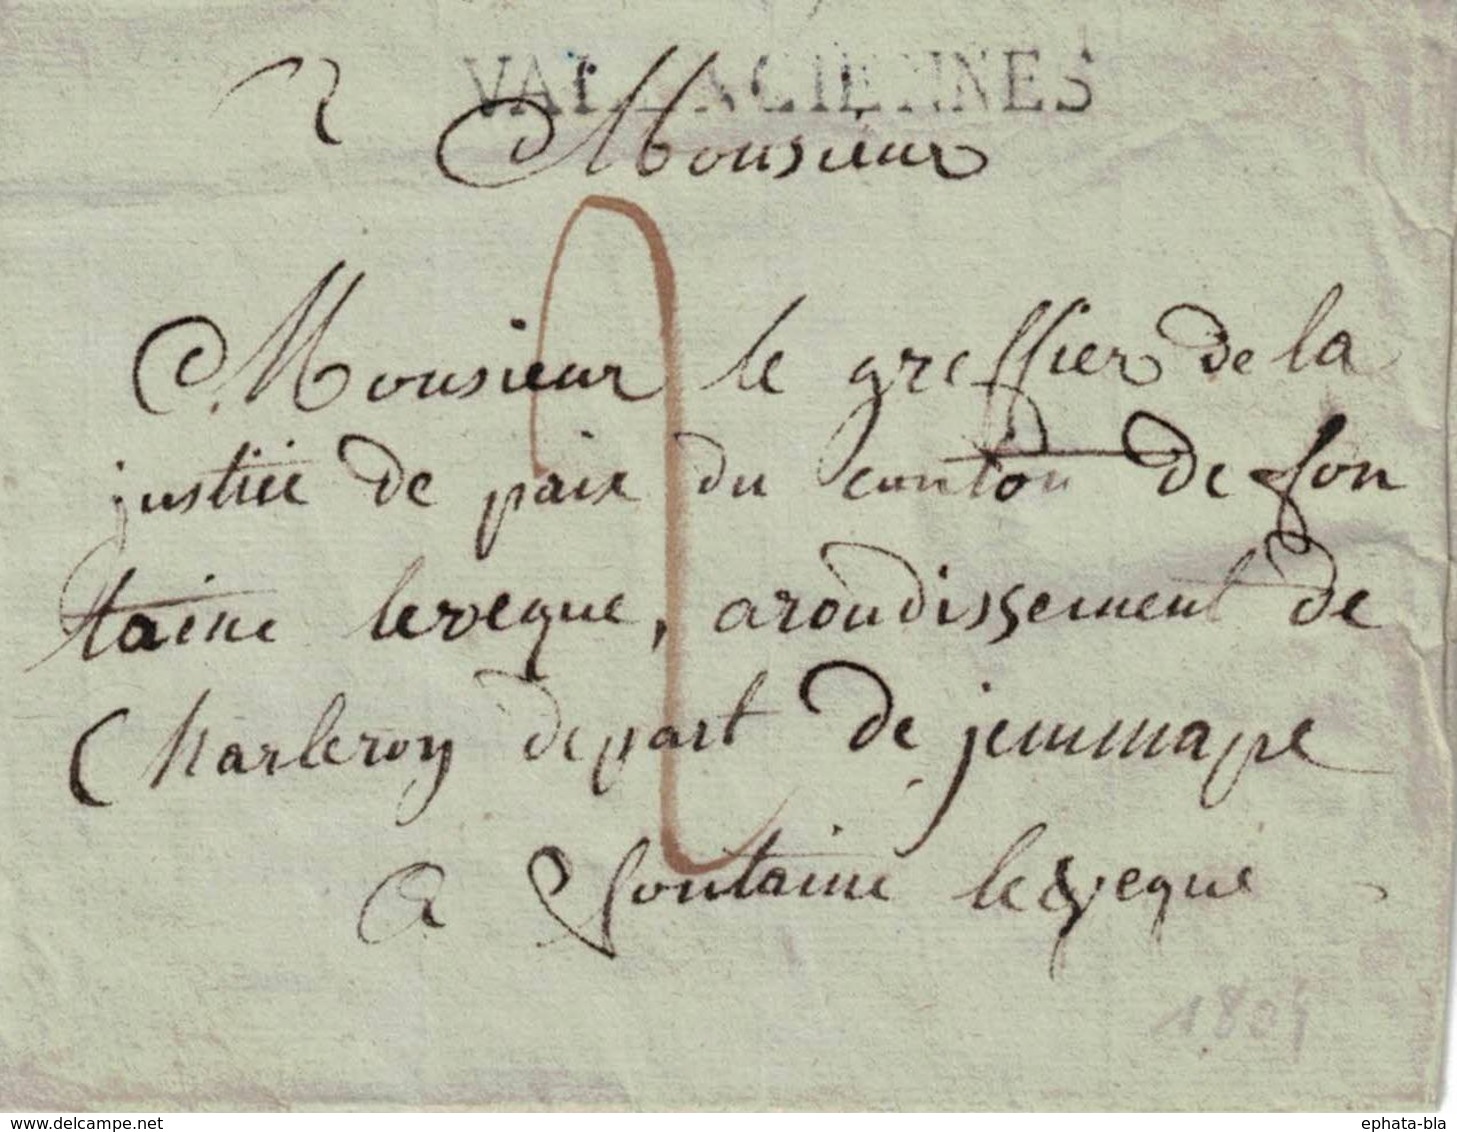 VALENCIENNES
2
Monsieur
2
Monsieur le greffier de la
justice de paix du canton de fon
taine leveque, arondissement de
Charleroy depart de jemmape
a fontaine leveque
1809
www.delcampe.net
ephata-bla